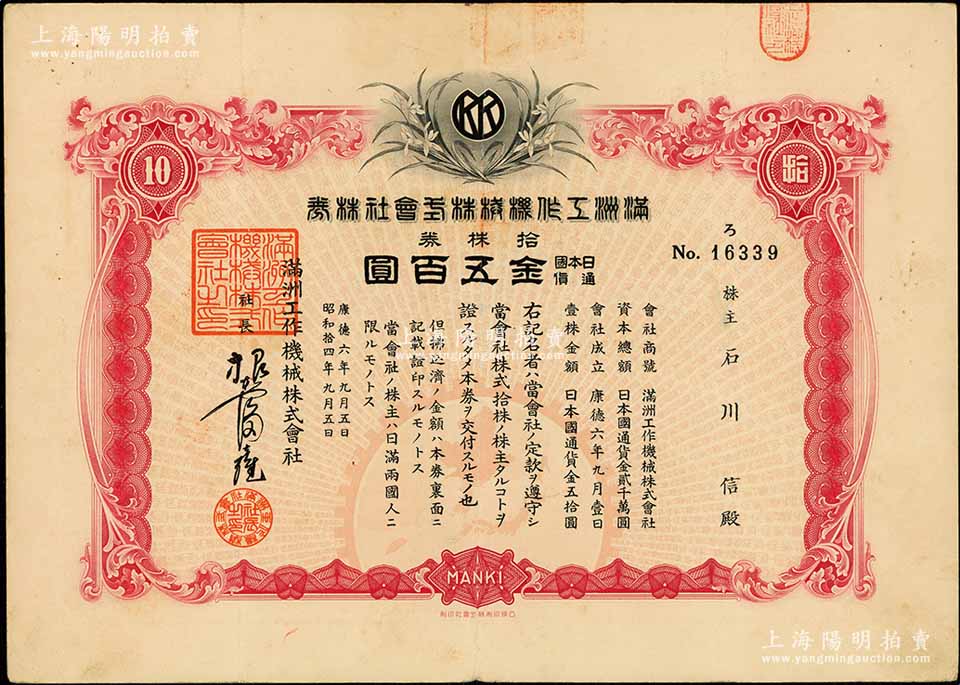 上海陽明拍賣
www.yangmingauction.com
10
拾
滿洲工作機械株式會社株券
拾株券
日本國通貨
金五百圓
ろ
No. 16339
株主 石川 信殿
會社商號 滿洲工作機械株式會社
資本總額 日本國通貨金貳千萬圓
會社成立 康德六年九月壹日
壹株金額 日本國通貨金五拾圓
右記名者ハ當會社ノ定款ヲ遵守シ
當會社株式拾株ノ株主タルコトヲ
證スル爲メ本券ヲ交付スルモノ也
但拂込濟ノ金額ハ本券裏面ニ
記載證印スルモノトス
當會社ノ株主ハ日滿兩國人ニ
限ルモノトス
康德六年九月五日
昭和拾四年九月五日
滿洲工作機械株式會社
社長
滿洲工作機械株式會社之印
MANKI
上海陽明拍賣
www.yangmingauction.com
上海陽明拍賣
www.yangmingauction.com